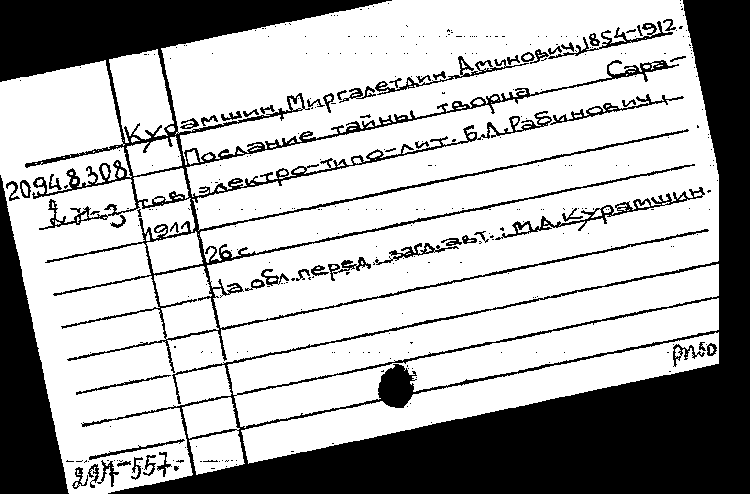 Курамшин, Миргалетдин Аминович, 1854-1912.
Послание тайны творца. Сара-
20.94.8.308
тов, электро-типо-лит. Б.Л. Рабинович,
1911
26 с.
На обл. перед загл. авт.: М.А. Курамшин.
РПБО
221-557.